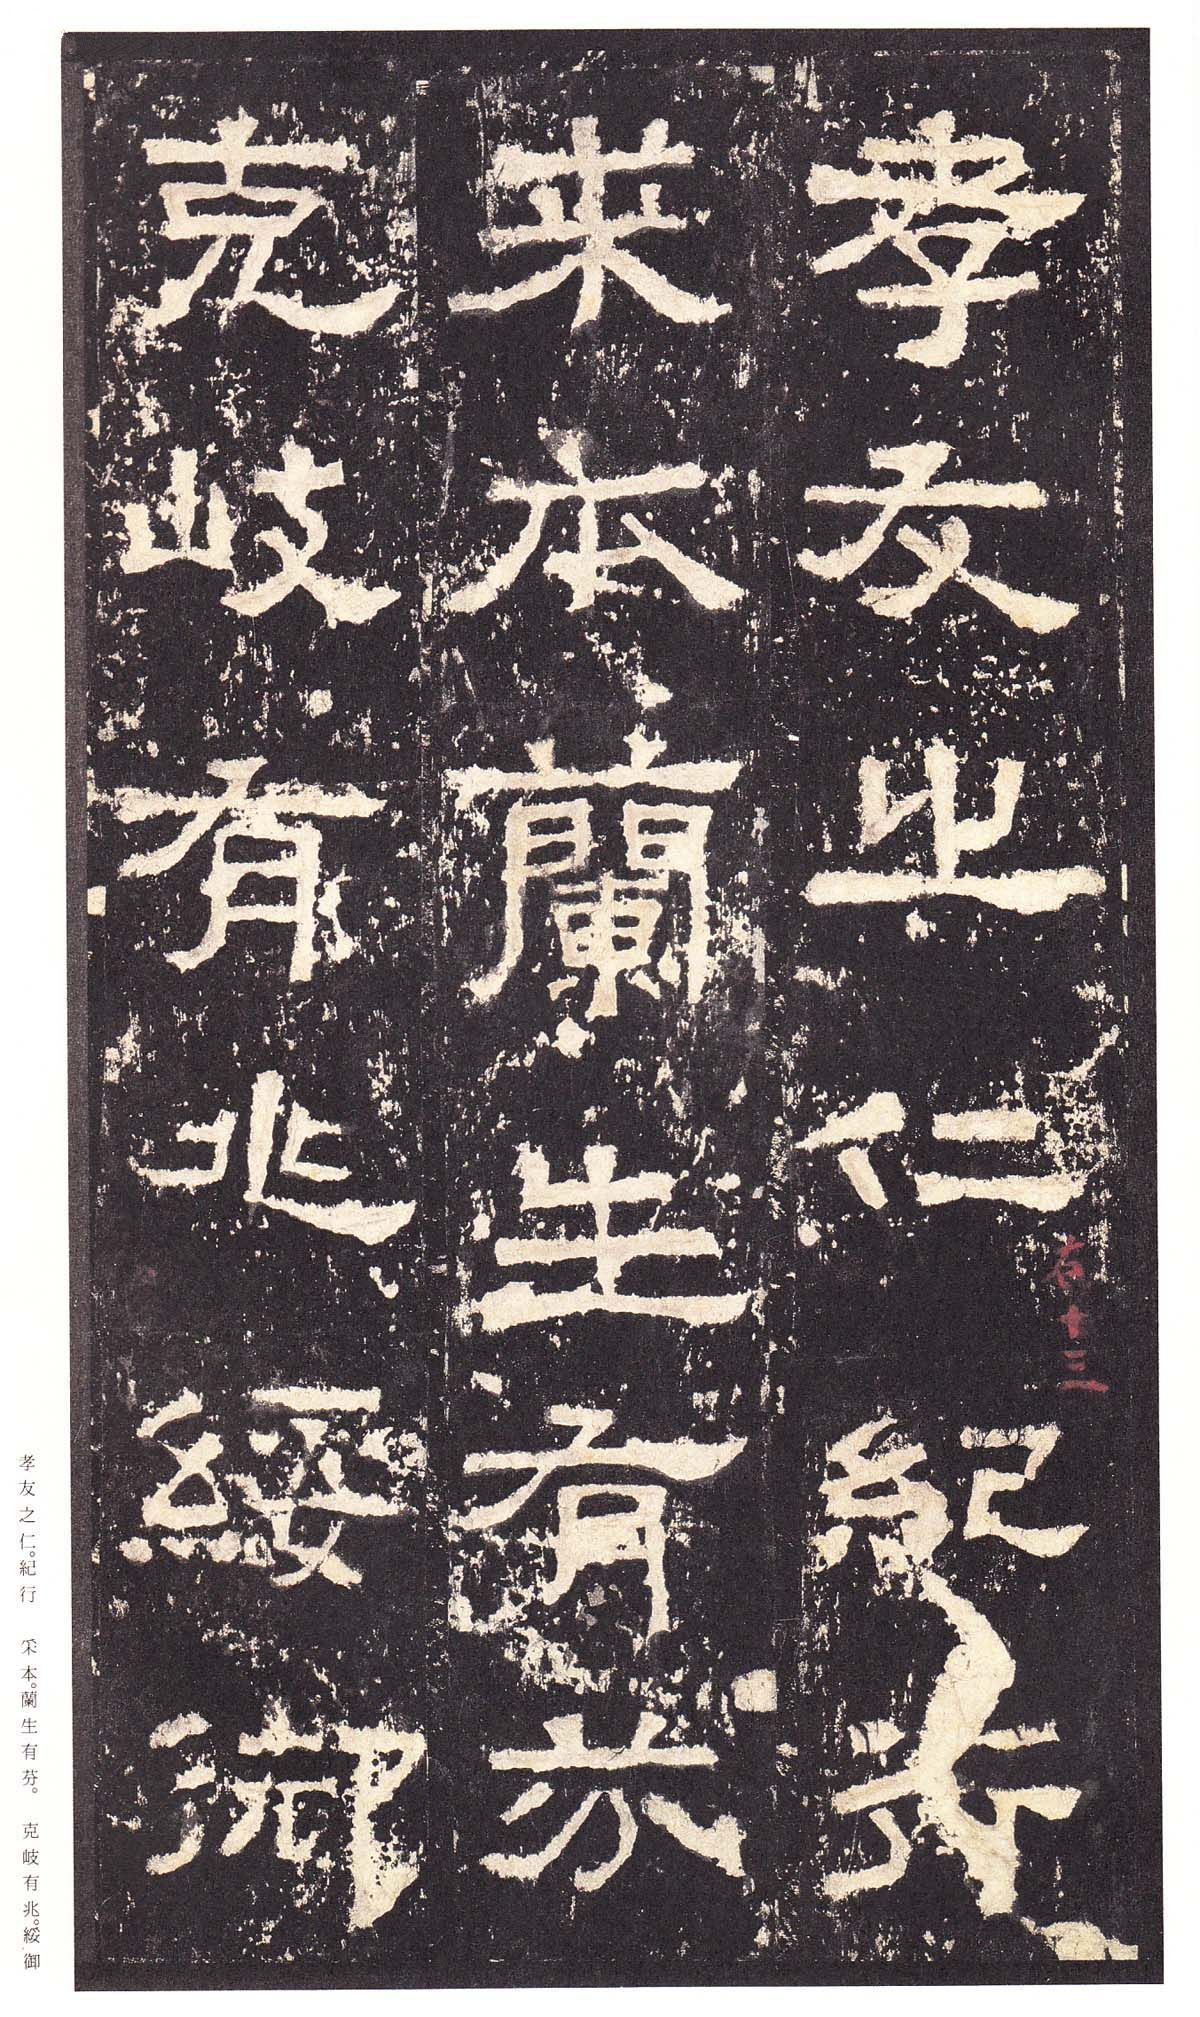 孝友之仁紀行
右十三
来本蘭生有芬
克岐有兆綏御
孝友之仁。紀行 釆本。蘭生有芬。 克岐有兆。綏御